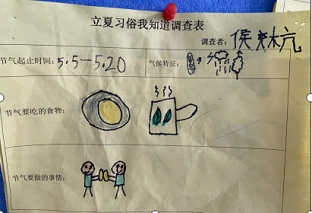 立夏习俗我知道调查表
调查者:
节气起止时间: 5.5—5.20 气候特征:
节气要吃的食物:
节气要做的事情: